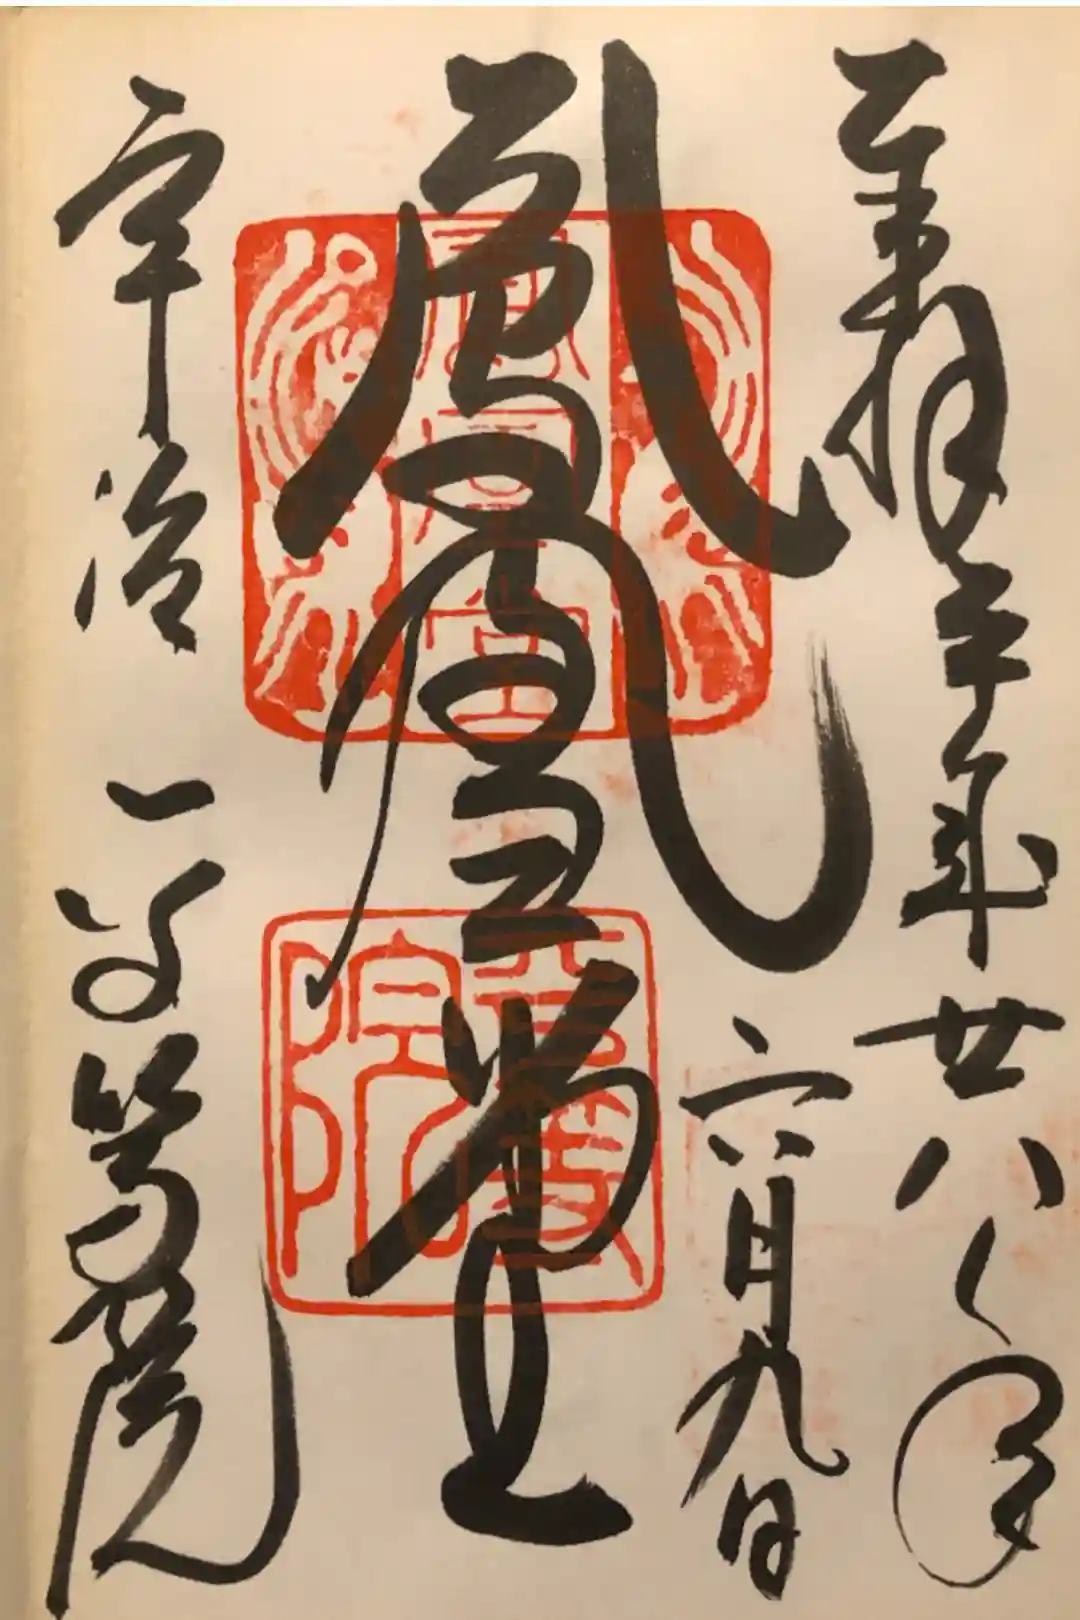 奉拝 平成廿八年
六月九日
鳳凰堂
宇治 平等院
鳳凰堂
平等院